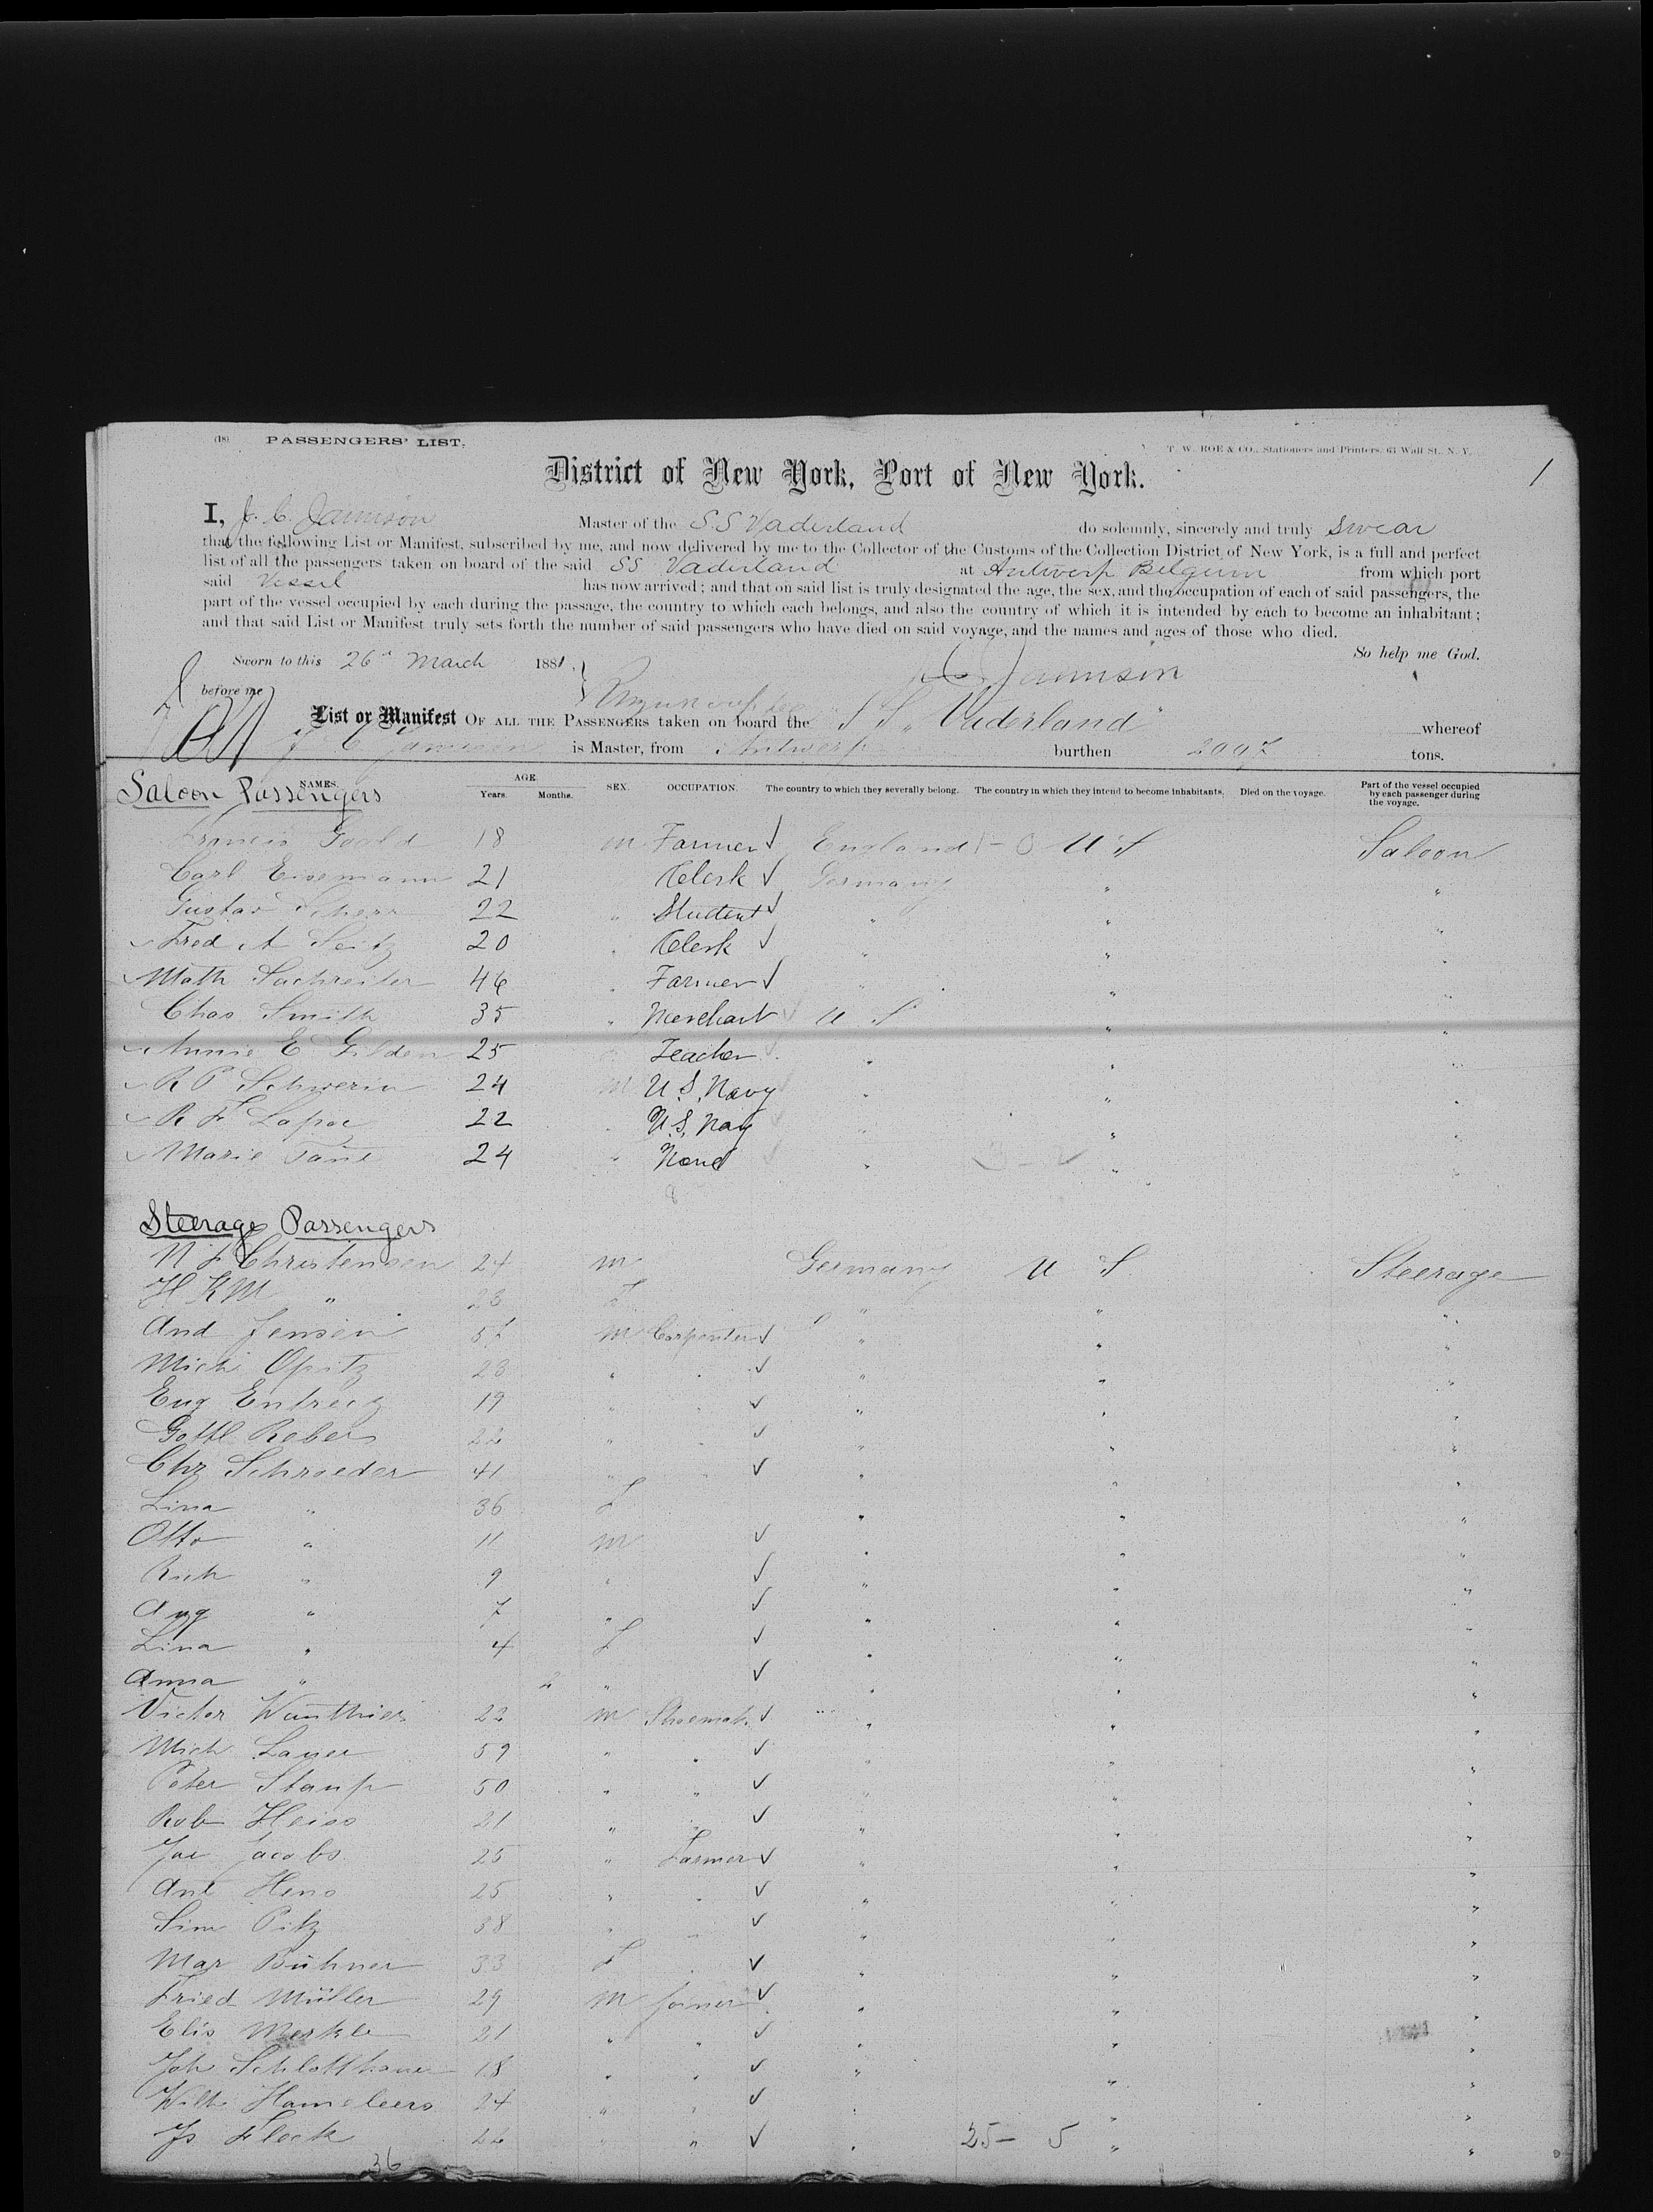 (18) PASSENGERS' LIST. T. W. ROE & CO., Stationers and Printers, 63 Wall St. N. Y.
District of New York, Port of New York. 1
I, J. C. Jamison Master of the S.S Vaderland do solemnly, sincerely and truly swear
that the following List or Manifest, subscribed by me, and now delivered by me to the Collector of the Customs of the Collection District of New York, is a full and perfect
list of all the passengers taken on board of the said SS Vaderland at Antwerp Belgium from which port
said Vessel has now arrived; and that on said list is truly designated the age, the sex, and the occupation of each of said passengers, the
part of the vessel occupied by each during the passage, the country to which each belongs, and also the country of which it is intended by each to become an inhabitant;
and that said List or Manifest truly sets forth the number of said passengers who have died on said voyage, and the names and ages of those who died.
So help me God.
Sworn to this 26" March 1881, J C Jamison
before me
List or Manifest OF ALL THE PASSENGERS taken on board the S S "Vaderland" whereof
J C Jamison is Master, from Antwerp burthen tons.
NAMES. AGE. Years. Months. SEX. OCCUPATION. The country to which they severally belong. The country in which they intend to become inhabitants. Died on the voyage. Part of the vessel occupied by each passenger during the voyage.
Saloon Passengers
Francis 18 m Farmer England U S Saloon
Carl Eisemann 21 Clerk Germany " "
Gustav 22 " Student " " "
Fred A Seitz 20 " Clerk " " "
Math Sachreiter 46 " Farmer " " "
Chas Smith 35 " Merchant U S " "
Annie E Gilden 25 Teacher " " "
R P Schwerin 24 m U.S. Navy " " "
R F 22 " U.S. Nay " " "
Marie 24 " None " " "
Steerage Passengers
N F Christensen 24 m Germany U S Steerage
H K M " 23 F " " "
And Jensen m Carpenter " " "
Mich Opitz 23 " " " " "
Eug 19 " " " " "
Gottl Reber 22 " " " " "
Chr Schroeder 41 " " " " "
Lina " 36 F " " "
Otto " 11 m " " "
Rich " 9 " " " "
Aug " 7 " " " "
Lina " 4 F " " "
Anna " 2 " " " "
Victor Wauthier 22 m Shoemak. " " "
Mich Lauer 59 " " " " "
Peter Staup 50 " " " " "
Rob Heiss 21 " " " " "
Jac Jacobs 25 " Farmer " " "
Ant Heno 25 " " " " "
Sim Pitz 38 " " " " "
Mar Bühner 33 F " " "
Fried Müller 29 m Joiner " " "
Elis Merkle 21 " " " " "
Joh 18 " " " " "
Wilh Hameleers 24 " " " " "
Js Fleck 26 " " " 25- 5 " "
36